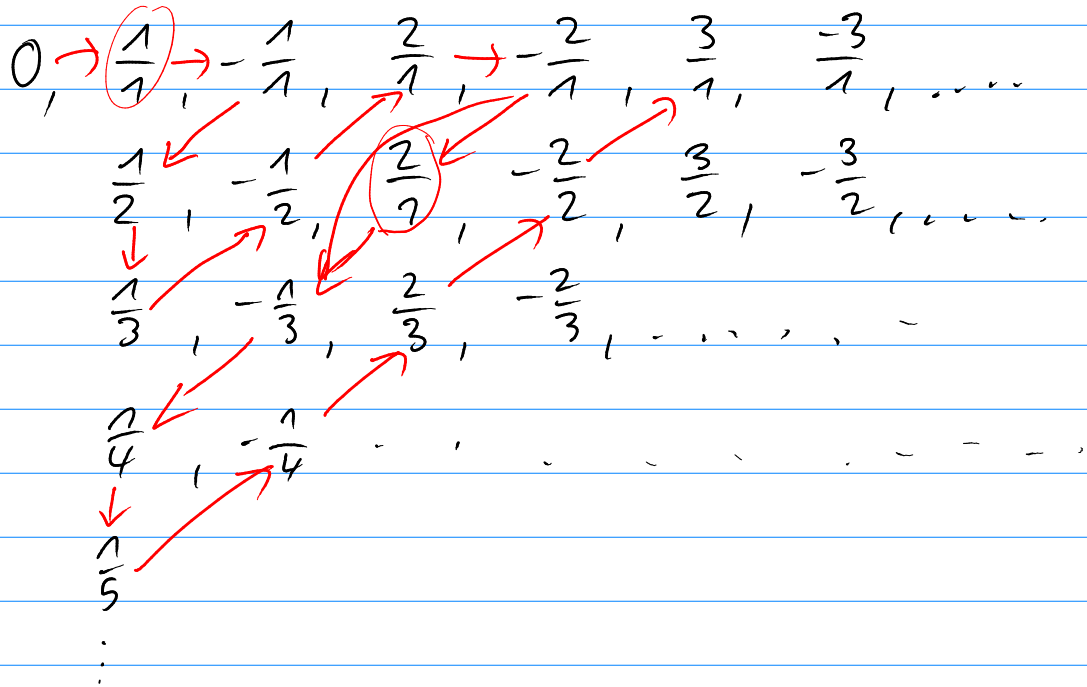 0, 1/1, -1/1, 2/1, -2/1, 3/1, -3/1, .....
1/2, -1/2, 2/1, -2/2, 3/2, -3/2, .....
1/3, -1/3, 2/3, -2/3, .....
1/4, -1/4 .....
1/5
⋮